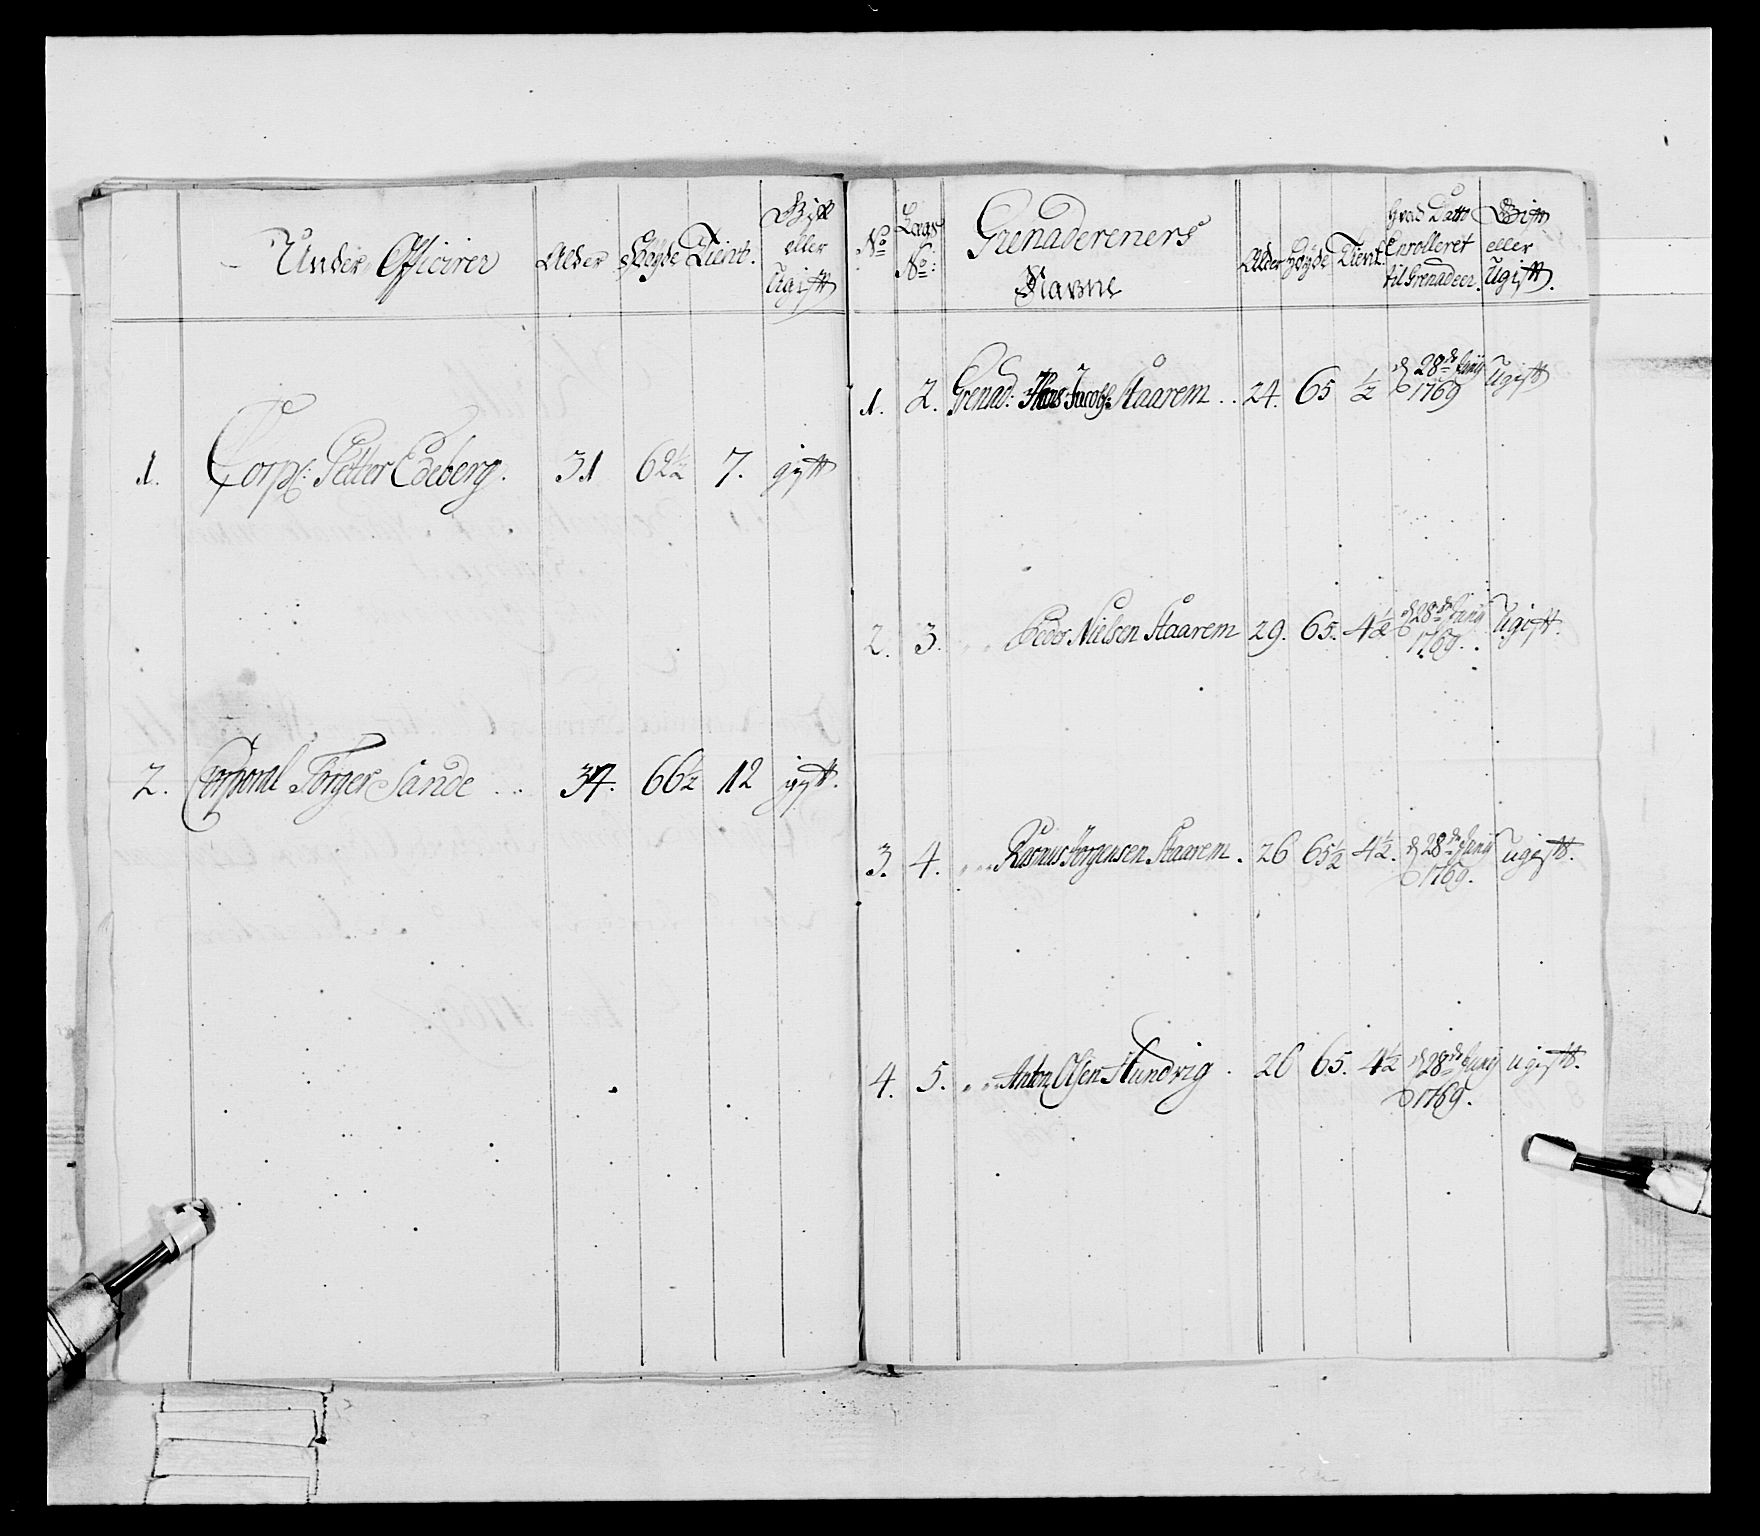 Under Officirer Alder Høyde Tient. Gift eller Ugift
1. Corpl: Petter Edeberg. 31 62½ 7. gift
2. Corporal Torger Sande .. 34. 66½ 12 gift.
No Laugs No: Grenadereners Navne Alder Høyde Tient. Hvad Dato Enrolleret til Grenadeer. Gift eller Ugift.
1. 2. Grenad: Jacobs: Staarem .. 24. 65 ½ d 28de Junÿ 1769 Ugift
2. 3. " " Peder Nielsen Staarem 29. 65. 4½ d 28de Junÿ 1769. Ugift.
3. 4. " " Rasmus Jörgensen Staarem. 26 65½ 4½. d 28de Junÿ 1769. Ugift.
4. 5. " " Anton Olsen Hundvig. 26 65. 4½ d 28de Junÿ 1769. Ugift.